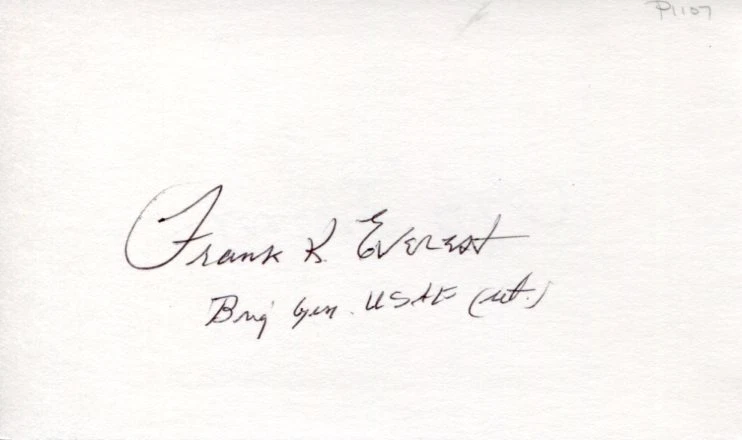 P1107
Frank K. Everest
Brig Gen. USAF (ret.)